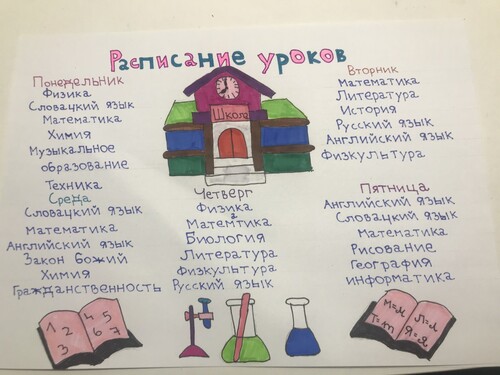 Расписание уроков
Понедельник
Физика
Словацкий язык
Математика
Химия
Музыкальное
образование
Техника
Среда
Словацкий язык
Математика
Английский язык
Закон божий
Химия
Гражданственность
Школа
Четверг
Физика
Математика
Биология
Литература
Физкультура
Русский язык
Вторник
Математика
Литература
История
Русский язык
Английский язык
Физкультура
Пятница
Английский язык
Словацкий язык
Математика
Рисование
География
информатика
1 2 3
4 5 6 7
М=м
Т=т
Л=л
Я=я